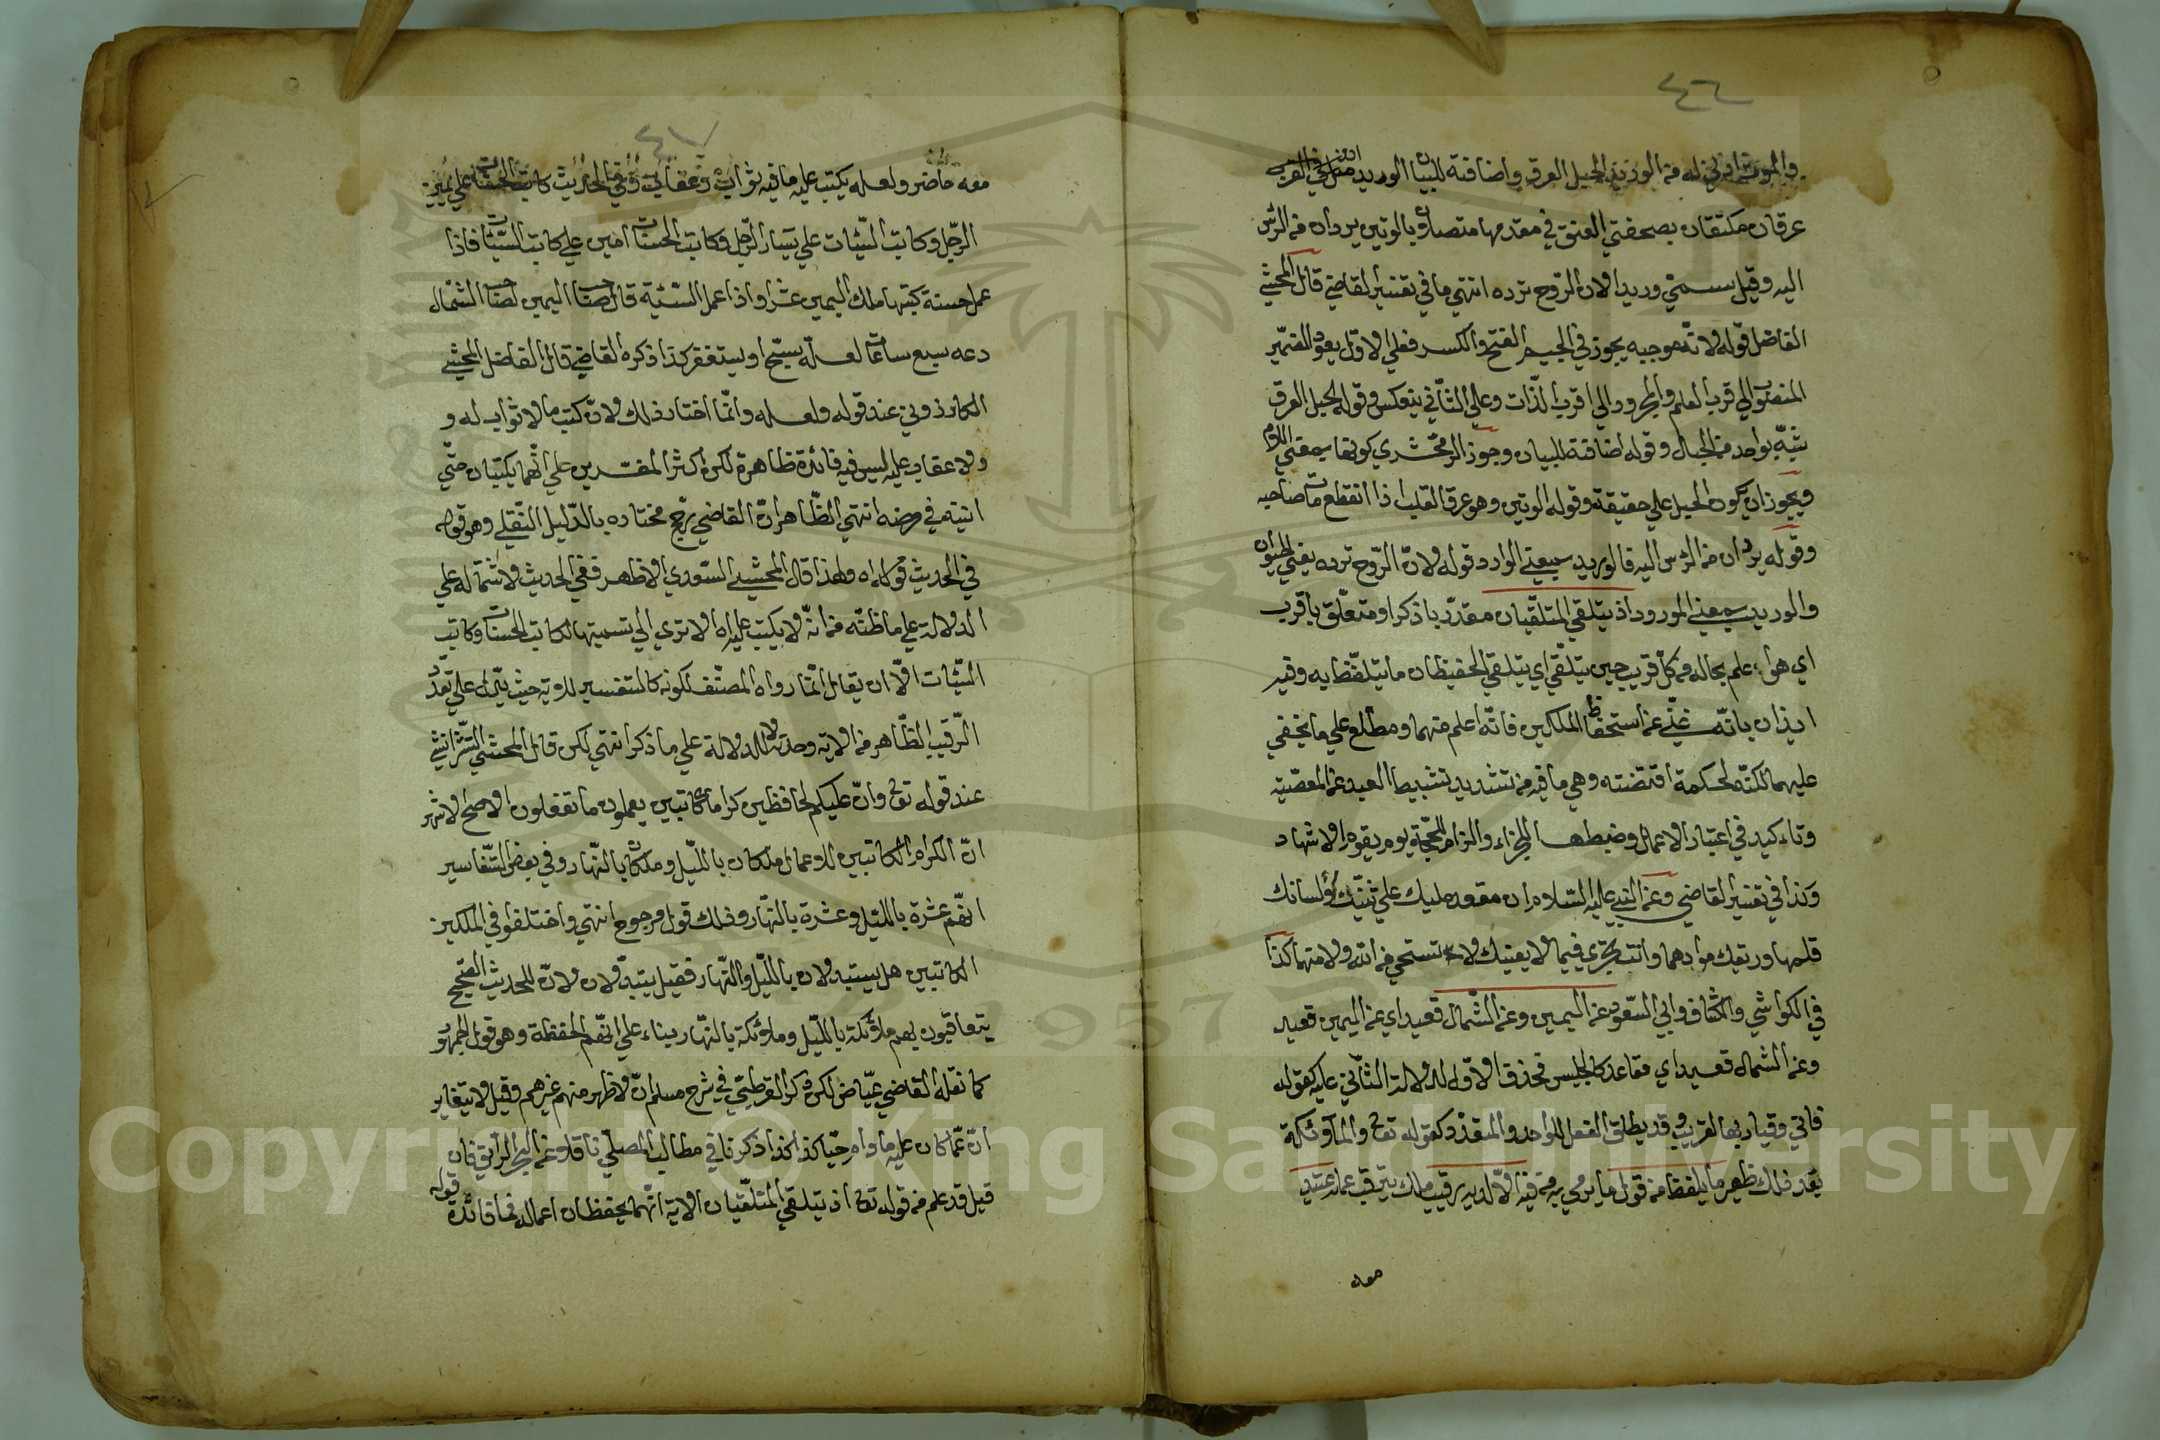 ٤٦
والموت اقرب له من الوريد الحبل العرق واضافته للبيان الوريدان
عرقان مكتنفان بصحفتي العنق في مقدمها متصلان بالوتين يردان من الرأس
اليه وقيل سمي وريدا لان الروح ترده انتهى ما في تفسير القاضي قال المحشي
الفاضل قوله لانه موجبه يجوز في الجيم الفتح والكسر فعلى الاول يعود الضمير
المنصوب الى قرب العلم والمجرور الى اقرب الذات وعلى الثاني ينعكس وقوله الحبل العرق
شبه بواحد من الحبال وقوله اضافته للبيان وجوز الزمخشري كونها بمعنى اللام
ويجوز ان يكون الحبل على حقيقته وقوله الوتين وهو عرق القلب اذا انقطع مات صاحبه
وقوله يردان من الرأس اليه فالوريد بمعنى الوارد قوله لان الروح ترده يعني الحيوان
والوريد بمعنى المورود اذ يتلقى المتلقيان مقدر باذكر او متعلق باقرب
اي هو اعلم بحاله من كل قريب حين يتلقى اي يتلقى الحفيظان ما يتلفظ به وفيه
ايذان بانه غني عن استحفاظ الملكين فانه اعلم منهما ومطلع على ما يخفى
عليهما لكنه لحكمة اقتضته وهي ما فيه من تشديد تثبيط العبد عن المعصية
وتاءكيد في اعتبار الاعمال وضبطها للجزاء والزام الحجة يوم يقوم الاشهاد
وكذا في تفسير القاضي وعن النبي عليه السلام ان مقعد مليك على ثنيتك ولسانك
قلمها وريقك مدادهما وانت تجري فيما لا يعنيك لا تستحي من الله ولا منهما كذا
في الكواشي والكشاف وابي السعود عن اليمين وعن الشمال قعيد اي عن اليمين قعيد
وعن الشمال قعيد اي مقاعد كالجليس فحذف الاول لدلالة الثاني عليه كقوله
فاني وقيار بها لغريب وقد يطلق الفعيل للواحد والمتعدد كقوله تعالى والملائكة
بعد ذلك ظهير ما يلفظ من قول ما يرمي به من فيه الا لديه رقيب ملك يترقب عمله عتيد
معه
٤٧
معه حاضر ولعله يكتب عليه ما فيه ثواب وعقاب وفي الحديث كاتب الحسنات على يمين
الرجل وكاتب السيئات على يسار الرجل وكاتب الحسنات امين على كاتب السيئات فاذا
عمل حسنة كتبها ملك اليمين عشرا واذا عمل السيئة قال صاحب اليمين لصاحب الشمال
دعه سبع ساعات لعله يسبح او يستغفر كذا ذكره القاضي قال الفاضل المحشي
الكازروني عند قوله ولعله وانما اختار ذلك ولان كتب ما لا ثواب له و
ولا عقاب عليه ليس فيه فائدة ظاهرة لكن اكثر المفسرين على انهما يكتبان حتى
انينه في مرضه انتهى الظاهر ان القاضي رجح مختاره بالدليل النقلي وهو قوله
في الحديث ولهذا قال المحشي السعدي الاظهر ففي الحديث ولاشتماله على
الدلالة على ما ظنه من انه لا يكتب عليه الا ترى الى تسميتها الكاتب الحسنات وكاتب
السيئات الا ان يقال انما رواه المصنف لكونه كالتفسير للاية حيث يدل على تعدد
الرقيب الظاهر من الاية وحدته لا لدلالة على ما ذكر انتهى لكن قال المحشي
عند قوله تعالى وان عليكم لحافظين كراما كاتبين يعلمون ما تفعلون الاصح الاشهر
ان الكرام الكاتبين للاعمال ملكان بالليل وملكان بالنهار وفي بعض التفاسير
انهم عشرة بالليل وعشرة بالنهار وذلك قول مرجوح انتهى واختلفوا في الملكين
الكاتبين هل يستبدلان بالليل والنهار فقيل يتبدلان ولان للحديث الصحيح
يتعاقبون بهم ملائكة بالليل وملائكة بالنهار بناء على انهم الحفظة وهو قول الجمهور
كما نقله القاضي عياض لكن ذكر القرطبي في شرح مسلم ان الاظهر منهم غيرهم وقيل لا يتغايران
عما كان عليه ما دام حيا كذا ذكرنا في مطالب المصلي ناقلا عن البحر الرائق فان
قيل قد علم من قوله تعالى اذ يتلقى المتلقيان الاية انهما يحفظان اعماله فما فائدة
قوله